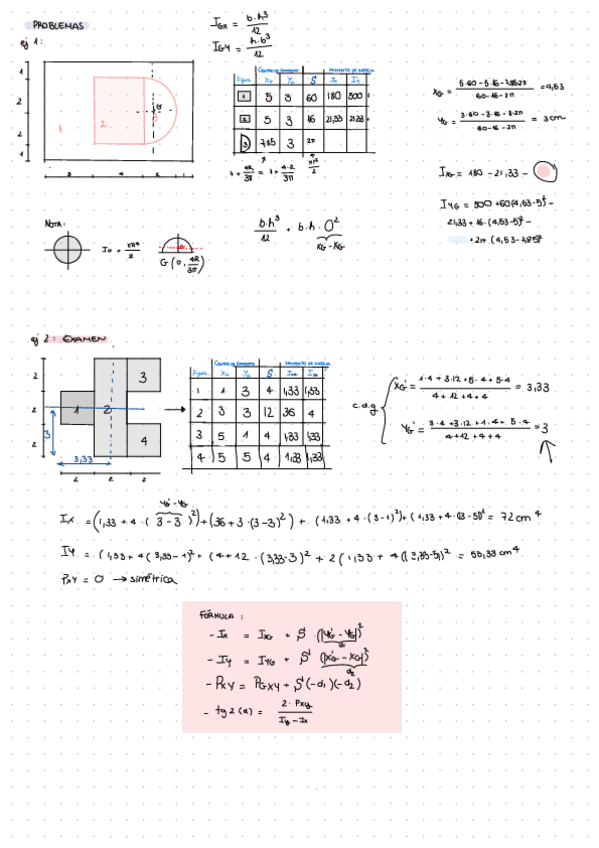 PROBLEMAS
ej 1:
I_GX = b·h³/12
I_GY = h·b³/12
CENTRO DE GRAVEDAD MOMENTO DE INERCIA
Figura X_G Y_G S I_X I_Y
1 5 3 60 180 500
2 5 3 16 21,33 21,33
3 7,85 3 2π
7 + 4R/3π = 7 + 4·2/3π
πR²/2
X_G = (5·60-5·16-7,85·2π)/(60-16-2π) = 4,53
Y_G = (3·60-3·16-3·2π)/(60-16-2π) = 3 cm
I_XG = 180 - 21,33 -
I_YG = 500 + 60(4,53-5)² -
21,33 + 16·(4,53-5)² -
+2π (4,53-7,85)²
NOTA:
I_0 = πR⁴/2
G (0, 4R/3π)
b·h³/12 + b·h·0²
X_G - X_G
ej 2: EXAMEN
1
2
3
4
3
3,33
2 2 2
CENTRO DE GRAVEDAD MOMENTO DE INERCIA
Figura X_G Y_G S
1 1 3 4 1,33 1,33
2 3 3 12 36 4
3 5 1 4 1,33 1,33
4 5 5 4 1,33 1,33
c.d.g
X_G' = (1·4+3·12+5·4+5·4)/(4+12+4+4) = 3,33
Y_G' = (3·4+3·12+1·4+5·4)/(4+12+4+4) = 3
Y_G' - Y_G
I_X = (1,33 + 4·(3-3)²) + (36+3·(3-3)²) + (1,33 + 4·(3-1)²) + (1,33 + 4·(3-5)² = 72 cm⁴
I_Y = (1,33 + 4(3,33-1)² + (4+12·(3,33-3)² + 2(1,33 + 4((3,33-5)² = 53,33 cm⁴
P_XY = 0 → simétrica
FÓRMULA:
- I_X = I_XG + S·(|Y_G' - Y_G|)²
d₁
- I_Y = I_YG + S (|X_G' - X_G|)²
d₂
- P_XY = P_GXY + S(-d₁)(-d₂)
- tg 2(α) = 2·P_xy/(I_y - I_x)